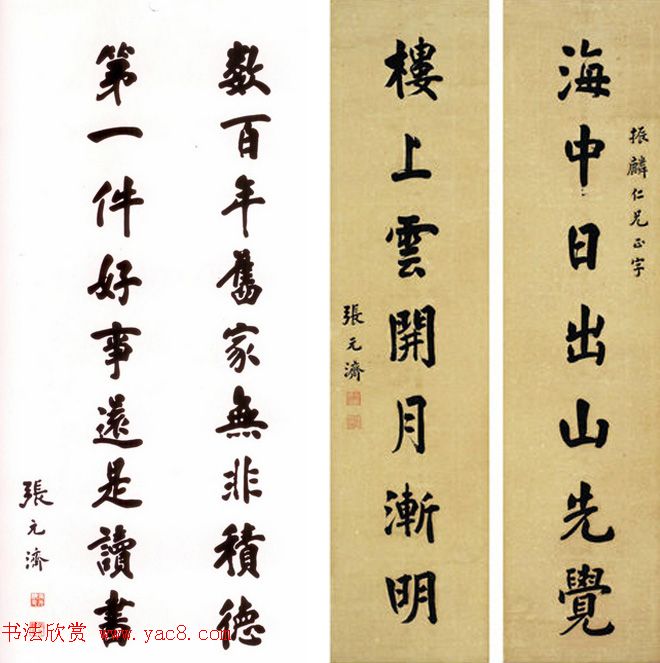 數百年舊家無非積德
第一件好事還是讀書
張元濟
振麟仁兄正字
海中日出山先覺
樓上雲開月漸明
張元濟
书法欣赏 www.yac8.com